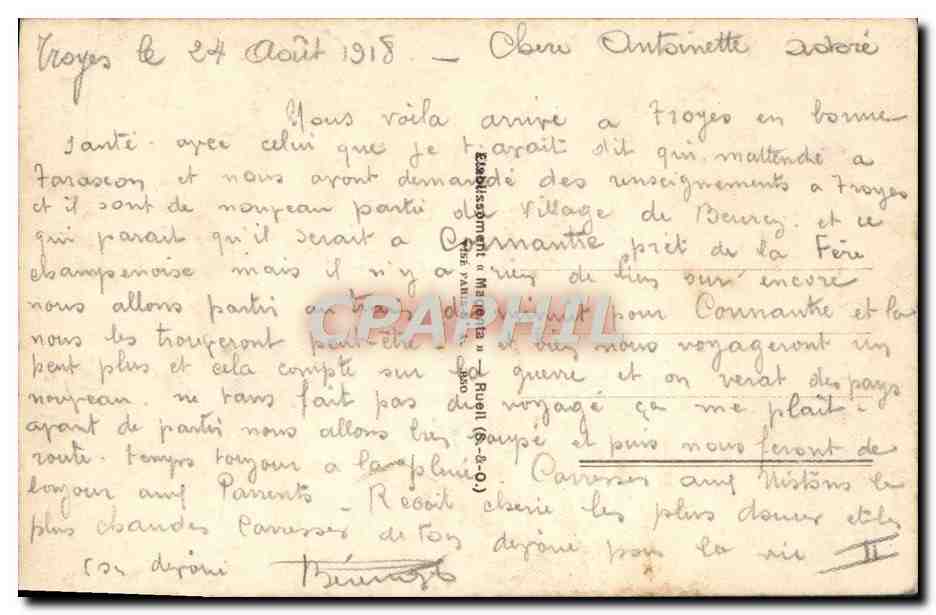 Troyes le 24 Août 1918 — Chere Antoinette adoré
Nous voila arrivé a Troyes en bonne
santé avec celui que je t'avait dit qui mattendé a
Tarascon et nous avont demandé des renseignements a Troyes
et il sont de nouveau partie du village de Beurey et ce
qui parait qu'il serait a Connantre prét de la Fére
champenoise mais il n'y a rien de bien sur encore
nous allons partir au train de minuit pour Connantre et la
nous les trouveront peut etre. et bien nous voyageront un
peut plus et cela compte sur la guerre et on verat des pays
nouveau. ne tans fait pas du voyagé ça me plait.
avant de partir nous allons bien soupé et puis nous feront de
route. temps toujour a la pluie. Carresses aux Nistons le
bonjour aux Parrents Recoit cherie les plus douces et les
plus chaudes Carresses de ton devoué pour la vie
ton devoué
II
Etablissement « Magenta » — Rueil (S.-&-O.)
VISÉ PARIS
850
CPAPHIL